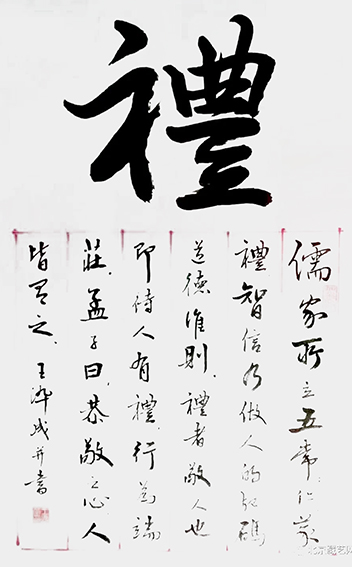 禮
儒家所立五常，仁義
禮智信乃做人的起碼
道德准則，禮者敬人也
即待人有禮，行為端
莊，孟子曰，恭敬之心人
皆有之，王 成并書